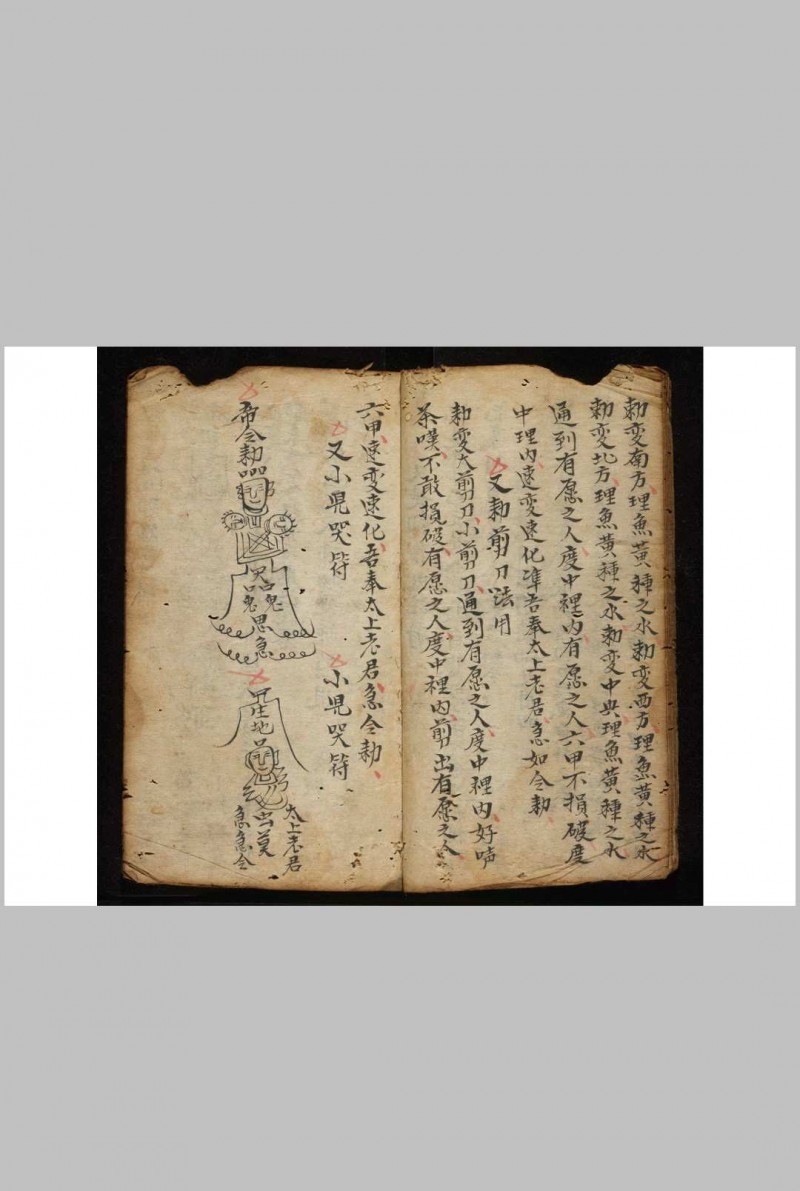 勅变南方理魚黃種之水勅变西方理魚黃種之水
勅变北方理魚黃種之水勅变中央理魚黃種之水
通到有愿之人度中裡内有愿之人六甲不損破度
中理内速变速化准吾奉太上老君急如令勅
又勅剪刀法用
勅变大剪刀小剪刀通到有愿之人度中裡内好声
茶嘆不敢損破有愿之人度中裡内剪出有愿之人
六甲速变速化吾奉太上老君急令勅
又小児哭符
小児哭符
帝令勅
哭
鬼
鬼
思
急
庄地
太上老君
出莫
急急令